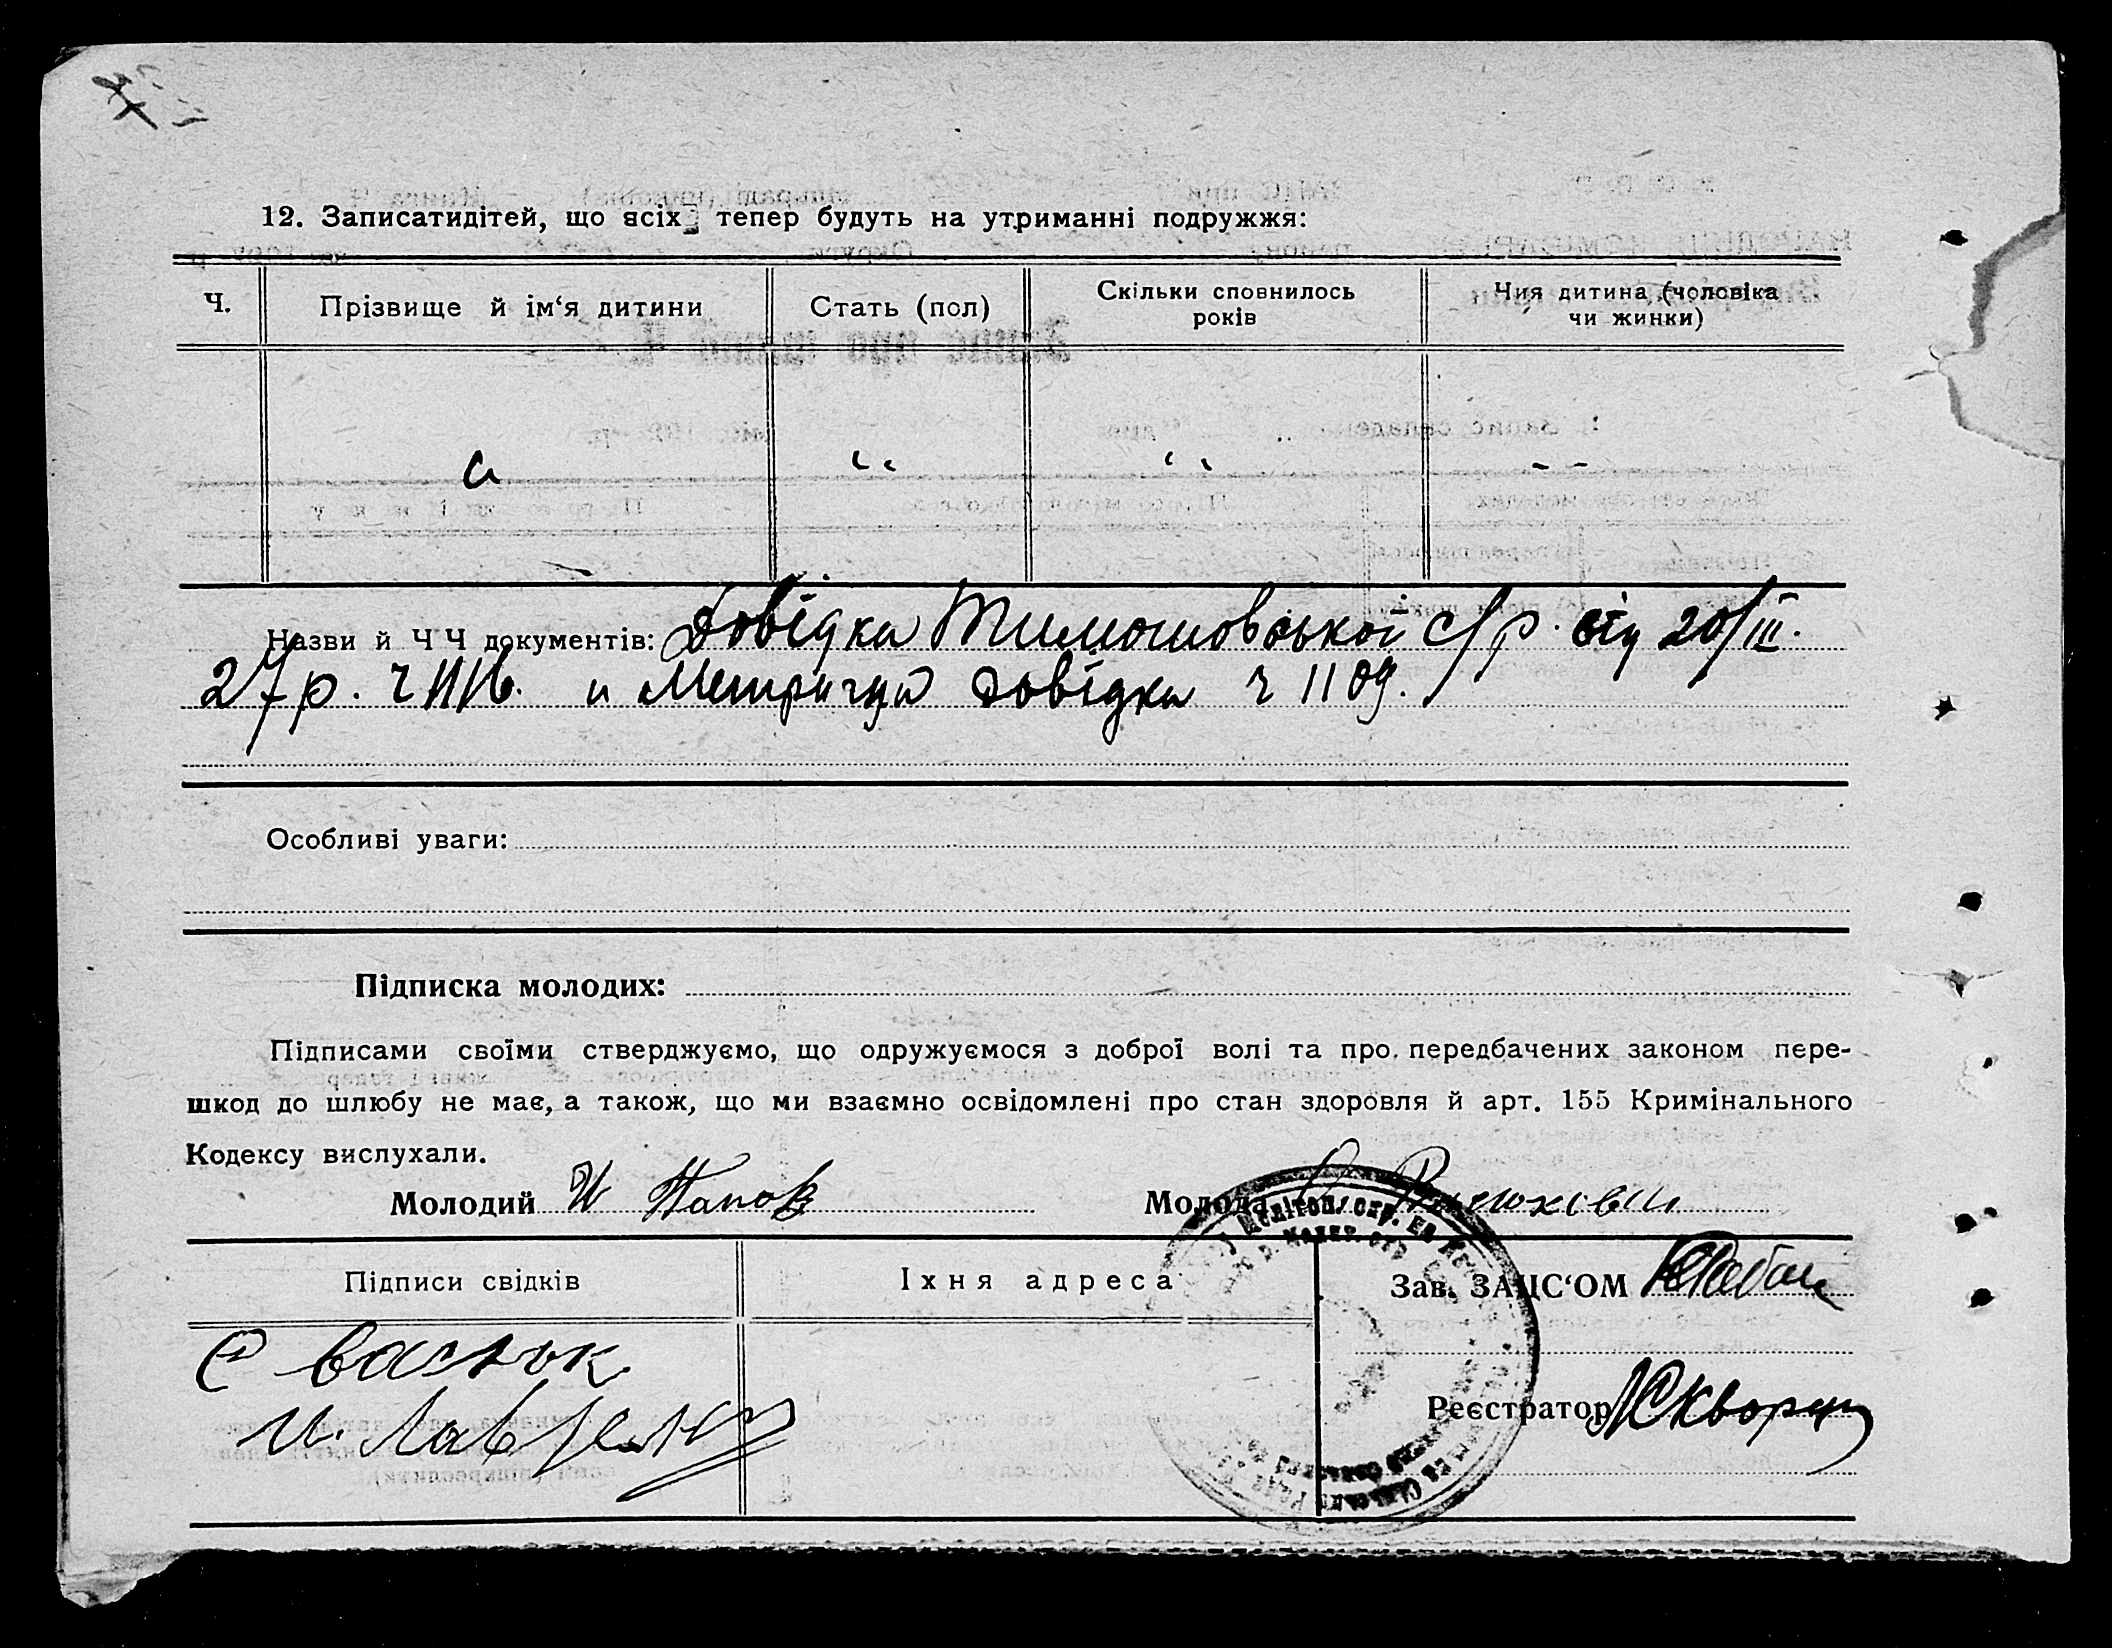 12. Записатидітей, що всіх тепер будуть на утриманні подружжя:
Ч.
Прізвище й ім‘я дитини
Стать (пол)
Скільки сповнилось
років
Чия дитина (чоловіка
чи жинки)
Назви й Ч Ч документів: Довідка Тимошовської с/р. від 20/III.
27 р. ч и Метрична довідка ч 1109.
Особливі уваги:
Підписка молодих:
Підписами своїми стверджуємо, що одружуємося з доброї волі та про передбачених законом пере-
шкод до шлюбу не має, а також, що ми взаємно освідомлені про стан здоровля й арт. 155 Кримінального
Кодексу вислухали.
Молодий И Папов
Молода
Підписи свідків
Їхня адреса
Зав. ЗАЦС‘ОМ
Реєстратор